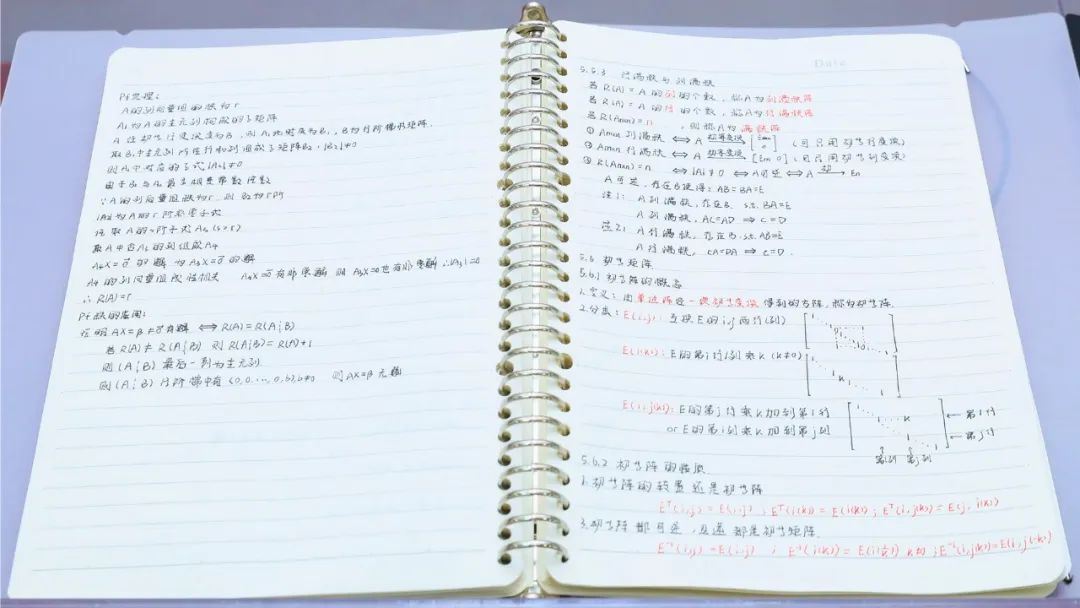 Pf定理:
A的列向量组的秩为r
A₁为A的主元列构成的子矩阵
A 经初等行变换变为B,则A₁此时变为B₁,B为行阶梯形矩阵.
取B₁中主元列所在行和列组成子矩阵B₂,|B₂|≠0
则A₁中对应的子式|A₂|≠0
由于B₂与A₂最多相差常数倍数
∵A的列向量组秩为r 则B₂为r阶
|A₂|为A的r阶非零子式
任取A的s阶子式A₃ (s>r)
取A中含A₃的列组成A₄
A₄X=0⃗ 的解 为A₃X=0⃗ 的解
A₄的列向量组线性相关 A₄X=0⃗有非零解 则 A₃X=0也有非零解 ∴|A₃|=0
∴ R(A)=r
Pf 秩的应用:
证明 AX=β ≠0⃗有解 ⟺ R(A)=R(A¦B)
若 R(A)≠R(A¦B) 则 R(A¦B)=R(A)+1
则(A¦B) 最后一列为主元列
则(A¦B) 行阶梯中有 (0,0,…,0,b),b≠0 则AX=β无解
Date
5.5.3 行满秩与列满秩
若R(A)=A的列的个数,称A为列满秩阵
若R(A)=A的行的个数,称A为行满秩阵
若R(Aₙₓₙ)=n ,则称A为满秩阵
① Aₘₓₙ 列满秩 ⟺ A 初等变换→ [Eₙ 0] (可只用初等行变换)
② Aₘₓₙ 行满秩 ⟺ A 初等变换→ [Eₘ 0] (可只用初等列变换)
③ R(Aₙₓₙ)=n ⟺ |A|≠0 ⟺ A可逆 ⟺ A 初→ Eₙ
A可逆,存在B使得:AB=BA=E
注1: A列满秩,存在B. s.t. BA=E
A列满秩,AC=AD ⟹ C=D
注2: A行满秩,存在B.s.t.AB=E
A行满秩,CA=DA ⟹ C=D.
5.6 初等矩阵
5.6.1 初等阵的概念
1.定义:由单位阵经一次初等变换得到的方阵,称为初等阵.
2.分类:E(i,j):互换E的i,j两行(列)
E(i(k)):E的第i行/列乘k (k≠0)
E(i,j(k)):E的第j行乘k加到第i行
or E的第i列乘k加到第j列
k
← 第i行
← 第j行
第i列 第j列
5.6.2 初等阵的性质
1.初等阵的转置还是初等阵
Eᵀ(i,j)=E(i,j) ; Eᵀ(i(k))=E(i(k)) ; Eᵀ(i,j(k))=E(j,i(k))
3.初等阵都可逆,且逆都是初等矩阵.
E⁻¹(i,j)=E(i,j) ; E⁻¹(i(k))=E(i(1/k)) k≠0 ; E⁻¹(i,j(k))=E(i,j(-k))